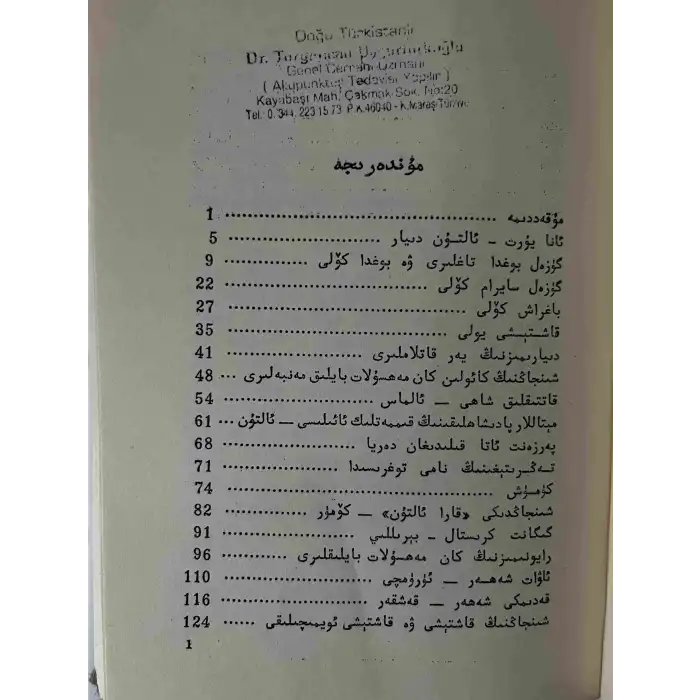 Doğu Türkistanlı
Dr.
Genel Cerrahi Uzmanı
( Akupunktur Tedavisi Yapılır )
Kayabaşı Mah. Çakmak Sok. No:20
Tel: 0.344. 223 15 73 P.K.46040 - K.Maraş/Türkiye
مۇندەرىجە
مۇقەددىمە ........ 1
ئانا يۇرت - ئالتۇن دىيار ........ 5
گۈزەل بوغدا تاغلىرى ۋە بوغدا كۆلى ........ 9
گۈزەل سايرام كۆلى ........ 22
باغراش كۆلى ........ 27
قاشتېشى يولى ........ 35
دىيارىمىزنىڭ يەر قاتلاملىرى ........ 41
شىنجاڭنىڭ كائولىن كان مەھسۇلات بايلىق مەنبەلىرى ... 48
قاتتىقلىق شاھى — ئالماس ........ 54
مېتاللار پادىشاھلىقىنىڭ قىممەتلىك ئائىلىسى — ئالتۇن ... 61
پەرزەنت ئاتا قىلىدىغان دەريا ........ 68
تەڭرىتېغىنىڭ نامى توغرىسىدا ........ 71
كۈمۈش ........ 74
شىنجاڭدىكى «قارا ئالتۇن» — كۆمۈر ........ 82
گىگانت كرىستال - بېرىللىي ........ 91
رايونىمىزنىڭ كان مەھسۇلات بايلىقلىرى ........ 96
ئاۋات شەھەر — ئۈرۈمچى ........ 110
قەدىمكى شەھەر — قەشقەر ........ 116
شىنجاڭنىڭ قاشتېشى ۋە قاشتېشى ئويمىچىلىقى ...... 124
1